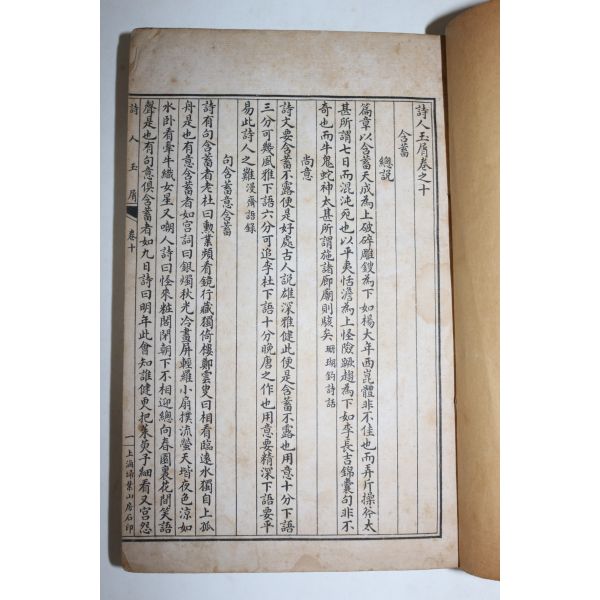 詩人玉屑卷之十
含蓄
總説
篇章以含蓄天成為上破碎雕鎪為下如楊大年西崑體非不佳也而弄斤操斧太
甚所謂七日而混沌死也以平夷恬澹為上怪險蹶趨為下如李長吉錦囊句非不
奇也而牛鬼蛇神太甚所謂施諸廊廟則駭矣 珊瑚鈎詩話
尚意
詩文要含蓄不露便是好處古人説雄深雅健此便是含蓄不露也用意十分下語
三分可幾風雅下語六分可追李杜下語十分晚唐之作也用意要精深下語要平
易此詩人之難 漫齋語錄
句含蓄意含蓄
詩有句含蓄者老杜曰勲業頻看鏡行藏獨倚樓鄭雲叟曰相看臨遠水獨自上孤
舟是也有意含蓄者如宮詞曰銀燭秋光冷畫屏輕羅小扇撲流螢天堦夜色涼如
水卧看牽牛織女星又嘲人詩曰怪來粧閣閉朝下不相迎總向春園裏花間笑語
聲是也有句意俱含蓄者如九日詩曰明年此會知誰健更把茱萸子細看又宮怨
詩人玉屑 卷十 一 上海埽葉山房石印